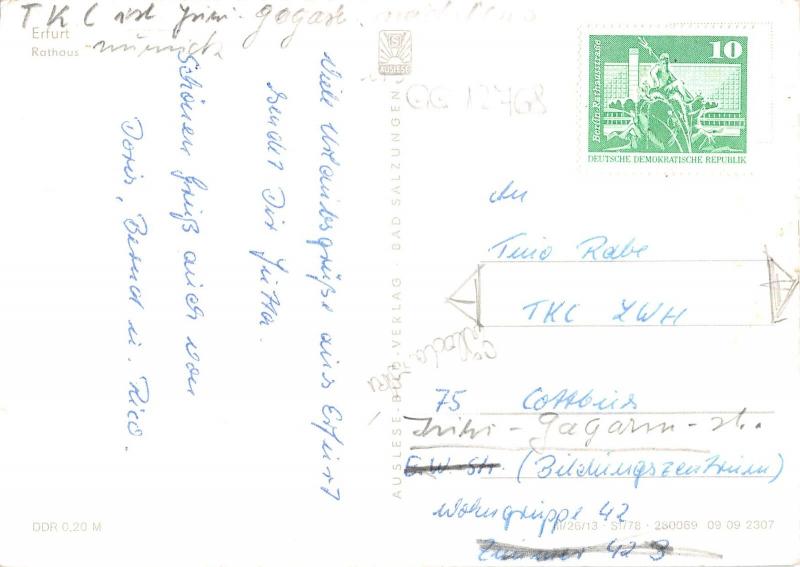 TKC ist Juri-Gagarin
Erfurt
Rathaus
Viele Urlaubsgrüße aus Erfurt
sendet Dir Jutta.
Schönen Gruß auch von
Doris, Bernd u. Rico.
AUSLESE
AUSLESE-BILD-VERLAG · BAD SALZUNGEN
GG 12768
10
Berlin-Rathausstraße
DEUTSCHE DEMOKRATISCHE REPUBLIK
An
Tino Rabe
TKC ZWH
75 Cottbus
Juri-Gagarin-Str.
E.W. Str. (Bildungszentrum)
Wohngruppe 42
Zimmer 423
DDR 0,20 M
III/26/13 · S1/78 · 280069 09 09 2307